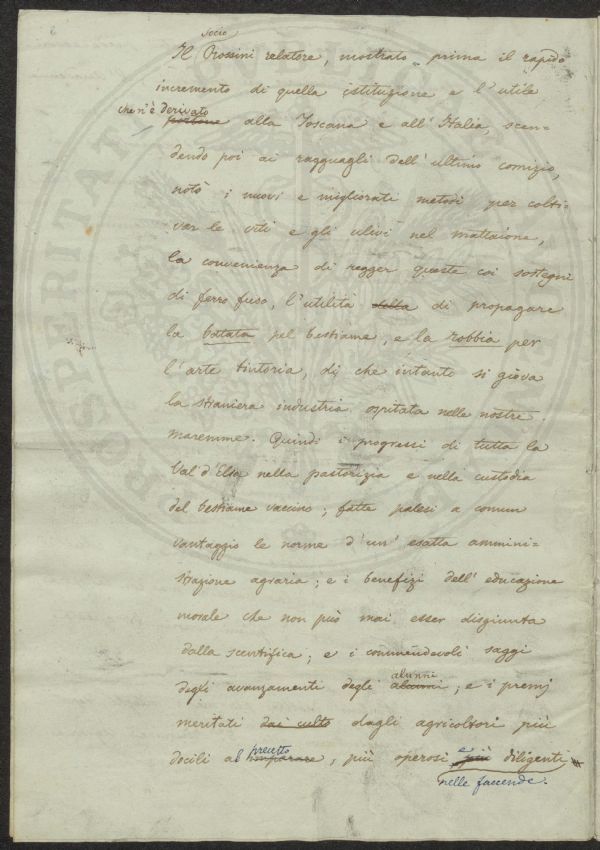 socio
Il Rossini relatore, mostrato prima il rapido
incremento di quella istituzione e l'utile
che n'è derivato
portone alla Toscana e all'Italia, scen-
dendo poi ai ragguagli dell'ultimo comizio,
notò i nuovi e migliorati metodi per colti-
var le viti e gli ulivi nel mattaione,
la convenienza di regger queste coi sostegni
di ferro fuso, l'utilità della di propagare
la batata pel bestiame, e la robbia per
l'arte tintoria, di che intanto si giova
la straniera industria ospitata nelle nostre
maremme. Quindi i progressi di tutta la
Val d'Elsa nella pastorizia e nella custodia
del bestiame vaccino; fatte palesi a comun
vantaggio le norme d'un'esatta ammini=
strazione agraria; e i benefizi dell'educazione
morale che non può mai esser disgiunta
dalla scentifica; e i commendevoli saggi
alunni
degli avanzamenti degli alunni; e i premj
meritati dai culto dagli agricoltori più
precetto e
docili al imparare, più operosi più diligenti
nelle faccende.
PROSPERITATI